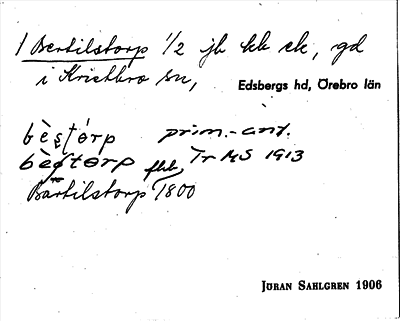 1 Bertilstorp 1/2 jb kk ck, gd
i Kristbro sn,
Edsbergs hd, Örebro län
bèsto̥rp prim.-ant.
bèstorp fkl, Tr MS 1913
Bärtilstorp 1800
JÖRAN SAHLGREN 1906